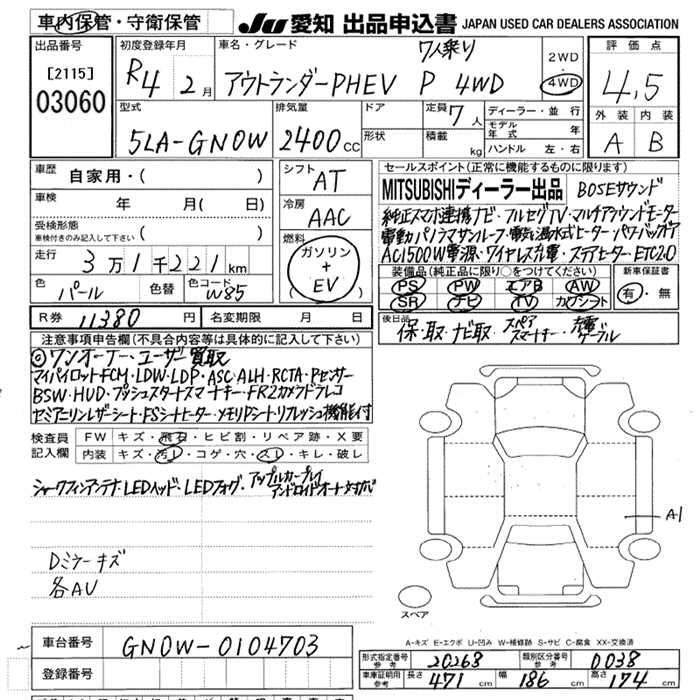 車内保管・守衛保管
JU 愛知 出品申込書 JAPAN USED CAR DEALERS ASSOCIATION
出品番号
[2115]
03060
初度登録年月
R4 2月
車名・グレード 7人乗り
アウトランダーPHEV P 4WD
2WD
4WD
評価点
4.5
外装 内装
A B
型式
5LA-GN0W
排気量
2400 CC
ドア
形状
定員 7人
積載 kg
ディーラー・並行
モデル年式 年
ハンドル 左・右
車歴
自家用・( )
車検
年 月( 日)
受検形態
車検付きのみ記入して下さい ( )
走行
3万1千221km
色 パール 色替 色コード W85
シフト
AT
冷房
AAC
燃料
ガソリン
+
EV
セールスポイント(正常に機能するものに限ります)
MITSUBISHIディーラー出品 BOSEサウンド
純正スマホ連携ナビ・フルセグTV・マルチアラウンドモニター
電動パノラマサンルーフ・電気温水式ヒーター・パワーバックドア
AC1500W電源・ワイヤレス充電・ステアヒーター・ETC2.0
装備品(純正品に限り○をつけてください)
PS PW エアB AW
SR ナビ TV カワシート
新車保証書
有・無
R券 11380 円 名変期限 月 日
後日品
保・取・ナビ取 スペアスマートキー・充電ケーブル
注意事項申告欄(不具合内容等は具体的に記入して下さい)
◎ワンオーナー・ユーザー買取
マイパイロット・FCM・LDW・LDP・ASC・ALH・RCTA・Pセンサー
BSW・HUD・プッシュスタートスマートキー・FR2カメラドラレコ
セミアニリンレザーシート・FSシートヒーター・メモリPシート・リフレッシュ機能付
検査員
記入欄
FW キズ・飛石・ヒビ割・リペア跡・X要
内装 キズ・汚レ・コゲ・穴・スレ・キレ・破レ
シャークフィンアンテナ・LEDヘッド・LEDフォグ・アップルカープレイ
アンドロイドオート対応
Dミラーキズ
各AU
A1
スペア
A-キズ E-エクボ U-凹み W-補修跡 S-サビ C-腐食 XX-交換済
車台番号 GN0W-0104703
登録番号
形式指定番号 参考 20268 類別区分番号 参考 0038
車庫証明用 参考 長さ 471 cm 幅 186 cm 高さ 174 cm